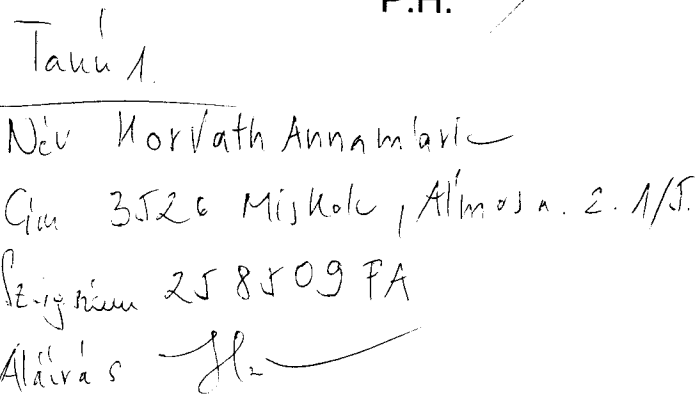 P.H.
Tanú 1.
Név Horváth Annamária
Cím 3526 Miskolc, Álmos u. 2. 1/5.
Sz.ig.szám 258509 FA
Aláírás